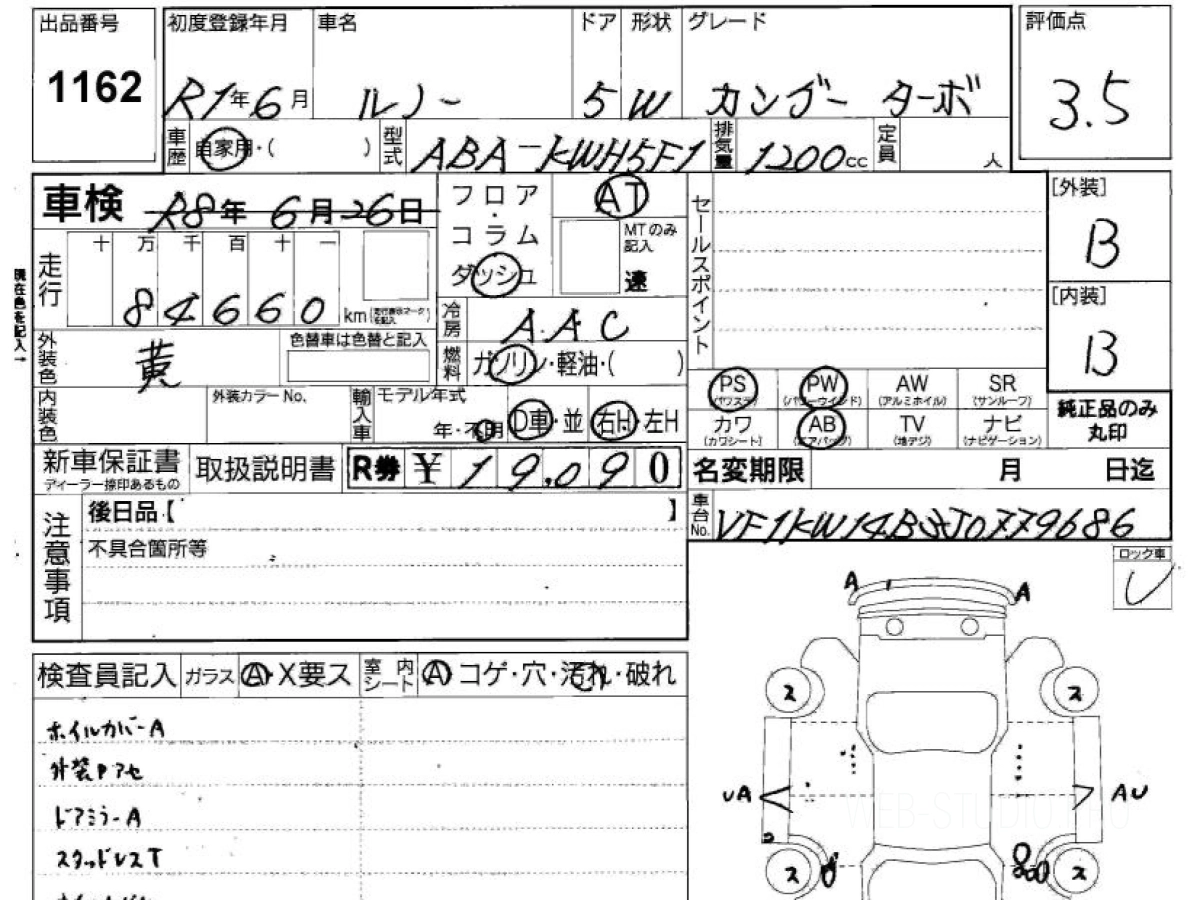 出品番号 初度登録年月 車名 ドア 形状 グレード 評価点
1162 R1年6月 ルノー 5 W カングー ターボ 3.5
車歴 自家用・( ) 型式 ABA-KWH5F1 排気量 1200cc 定員 人
車検 R8年6月26日 フロア・コラム ダッシュ AT セールスポイント [外装]
B
MTのみ記入 速
走行 十 万 千 百 十 一
84660 km
現在色を記入→
[内装]
B
冷房 AAC
外装色 黄 色替車は色替と記入 燃料 ガソリン・軽油・( )
PS (パワステ) PW (パワーウインド) AW (アルミホイル) SR (サンルーフ)
内装色 外装カラーNo. 輸入車 モデル年式 年・不明 D車・並 右H・左H
カワ (カワシート) AB (エアバッグ) TV (地デジ) ナビ (ナビゲーション)
純正品のみ丸印
新車保証書 ディーラー捺印あるもの 取扱説明書 R券 ¥19,090 名変期限 月 日迄
注意事項 後日品【 】 車台No.
不具合箇所等
ロック車
A A
検査員記入 ガラス A・X要ス 室内シート A コゲ・穴・汚れ・破れ
ス ス
ホイルカバーA
外装Pアセ
ドアミラーA
UA AU
WEB-STUDIO.PRO
スタッドレスT
ス ス